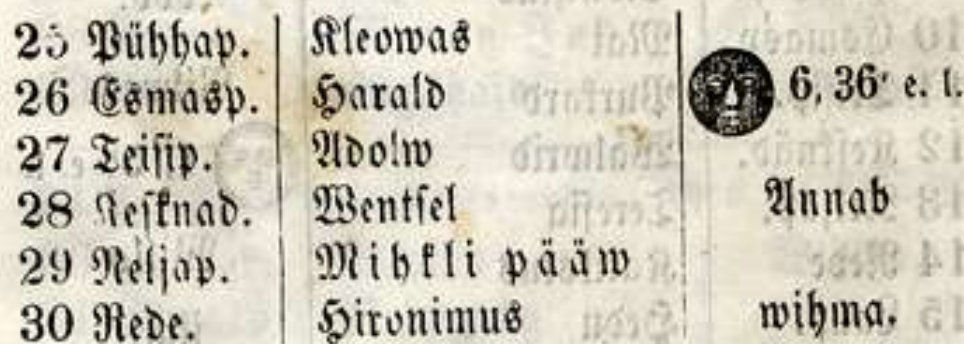 25 Pühhap. Kleowas
26 Esmasp. Harald 6, 36' e. l.
27 Teisip. Adolw
28 Kesknäd. Wentsel Annab
29 Neljap. Mihkli pääw
30 Rede. Hironimus wihma.